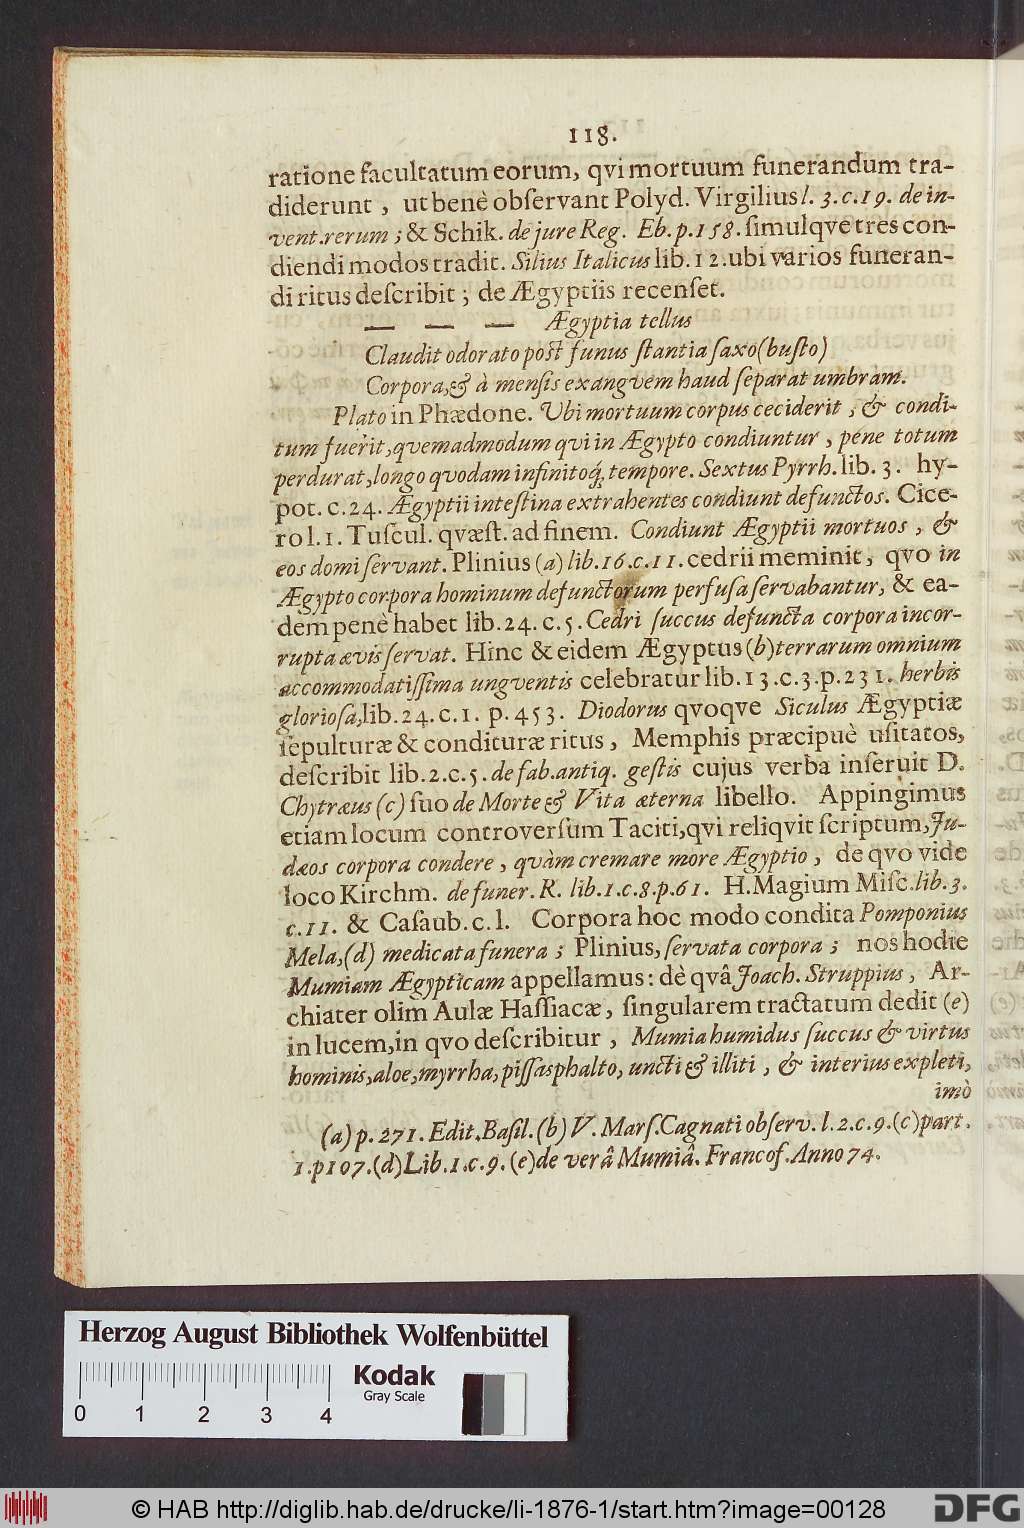 118.
ratione facultatum eorum, qvi mortuum funerandum tra-
diderunt, ut benè obſervant Polyd. Virgilius l. 3. c. 19. de in-
vent. rerum; & Schik. de jure Reg. Eb. p. 158. ſimulqve tres con-
diendi modos tradit. Silius Italicus lib. 12. ubi varios funeran-
di ritus deſcribit; de Ægyptiis recenſet.
— — — Ægyptia tellus
Claudit odorato poſt funus ſtantia ſaxo (buſto)
Corpora, & à menſis exangvem haud ſeparat umbram.
Plato in Phædone. Ubi mortuum corpus ceciderit, & condi-
tum fuerit, quemadmodum qui in Ægypto condiuntur, pene totum
perdurat, longo quodam infinitoq́; tempore. Sextus Pyrrh. lib. 3. hy-
pot. c. 24. Ægyptii inteſtina extrahentes condiunt defunctos. Cice-
ro l. 1. Tuſcul. qvæſt. ad finem. Condiunt Ægyptii mortuos, &
eos domi ſervant. Plinius (a) lib. 16. c. 11. cedrii meminit, qvo in
Ægypto corpora hominum defunctorum perfuſa ſervabantur, & ea-
dem penè habet lib. 24. c. 5. Cedri ſuccus defuncta corpora incor-
rupta ævis ſervat. Hinc & eidem Ægyptus (b) terrarum omnium
accommodatiſſima ungventis celebratur lib. 13. c. 3. p. 231. herbis
glorioſa, lib. 24. c. 1. p. 453. Diodorus qvoqve Siculus Ægyptiæ
ſepulturæ & condituræ ritus, Memphis præcipuè uſitatos,
deſcribit lib. 2. c. 5. de fab. antiq. geſtis cujus verba inſeruit D.
Chytræus (c) ſuo de Morte & Vita æterna libello. Appingimus
etiam locum controverſum Taciti, qvi reliqvit ſcriptum, Ju-
dæos corpora condere, quàm cremare more Ægyptio, de qvo vide
loco Kirchm. de funer. R. lib. 1. c. 8. p. 61. H. Magium Miſc. lib. 3.
c. 11. & Caſaub. c. l. Corpora hoc modo condita Pomponius
Mela, (d) medicata funera; Plinius, ſervata corpora; nos hodie
Mumiam Ægypticam appellamus: dè qvâ Joach. Struppius, Ar-
chiater olim Aulæ Haſſiacæ, ſingularem tractatum dedit (e)
in lucem, in qvo deſcribitur, Mumia humidus ſuccus & virtus
hominis, aloe, myrrha, piſſasphalto, uncti & illiti, & interius expleti,
imò
(a) p. 271. Edit. Baſil. (b) V. Marſ. Cagnati obſerv. l. 2. c. 9. (c) part.
1. p 107. (d) Lib. 1. c. 9. (e) de verâ Mumiâ. Francof. Anno 74.
Herzog August Bibliothek Wolfenbüttel
Kodak
Gray Scale
0 1 2 3 4
© HAB http://diglib.hab.de/drucke/li-1876-1/start.htm?image=00128
DFG